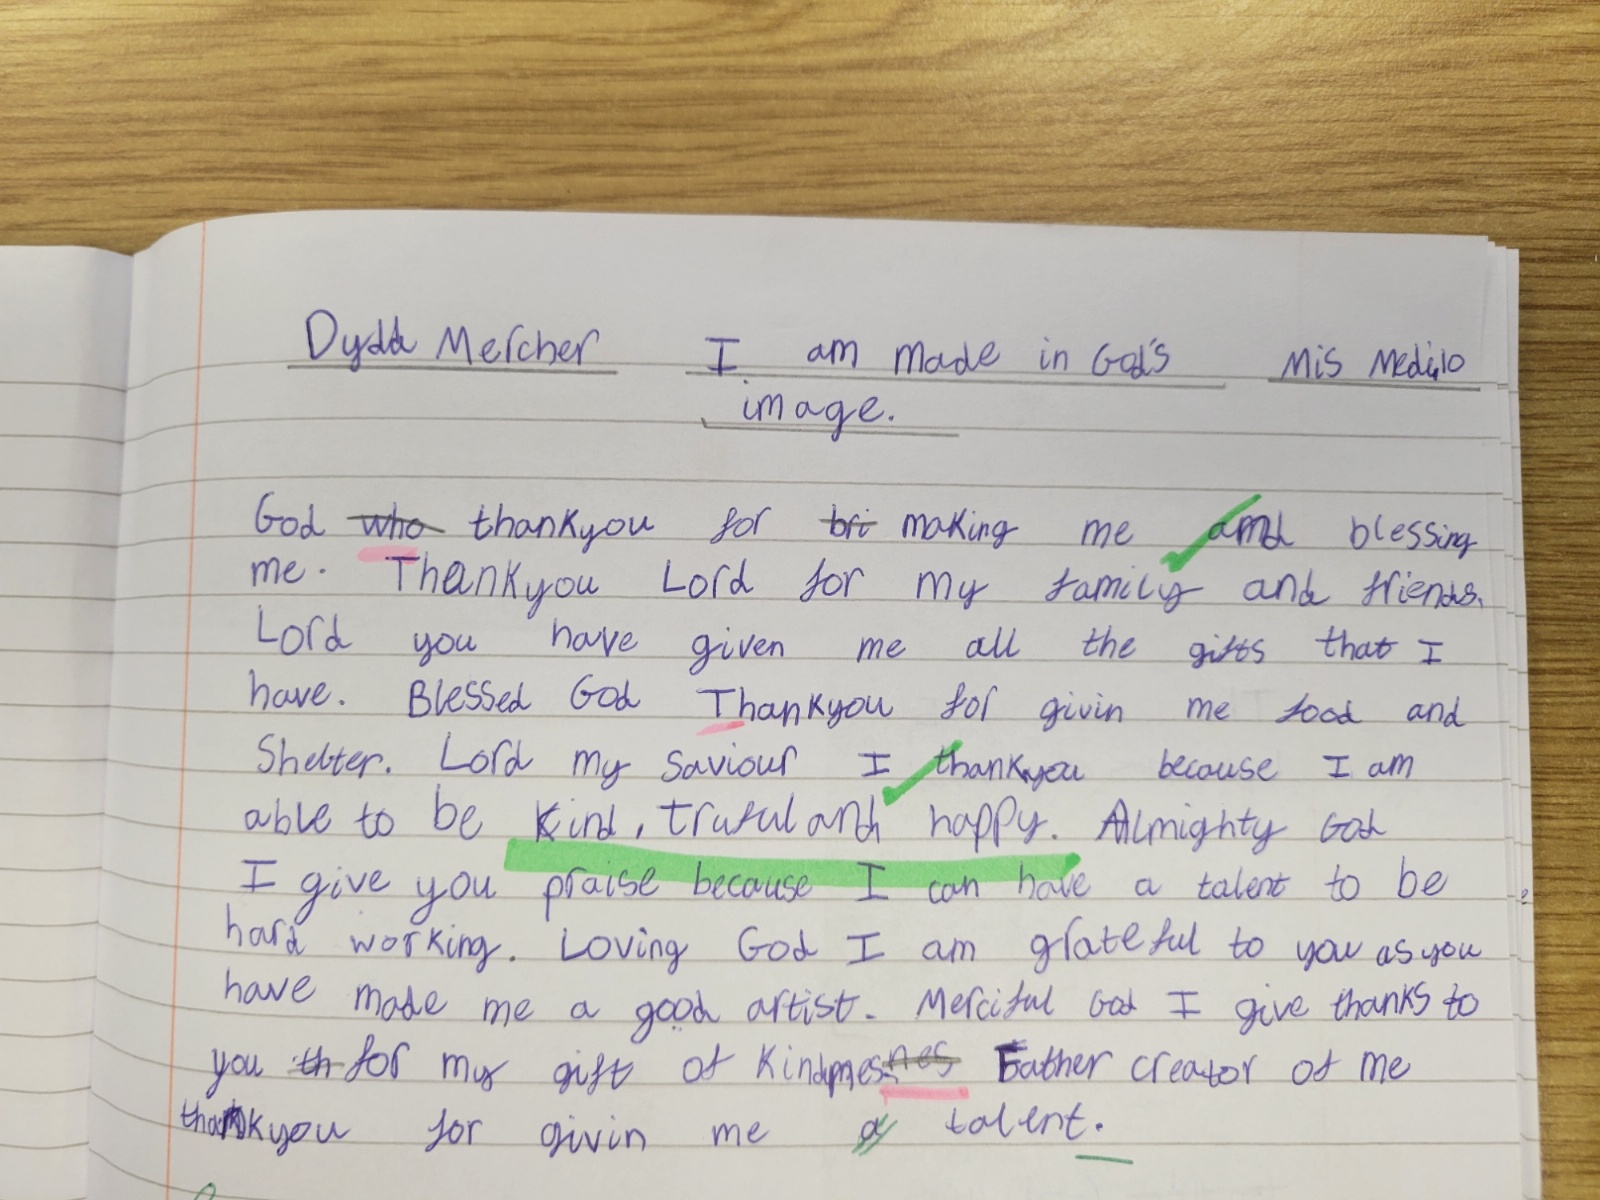 Dydd Mercher I am made in God's Mis Medi 10
image.
God who thankyou for bri making me and blessing
me. Thankyou Lord for my family and friends.
Lord you have given me all the gifts that I
have. Blessed God Thankyou for givin me food and
Shelter. Lord my Saviour I thankyou because I am
able to be kind, truful and happy. Almighty God
I give you praise because I can have a talent to be
hard working. Loving God I am grateful to you as you
have made me a good artist. Merciful God I give thanks to
you th for my gift of kindness nes Father creator of me
thankyou for givin me a talent.